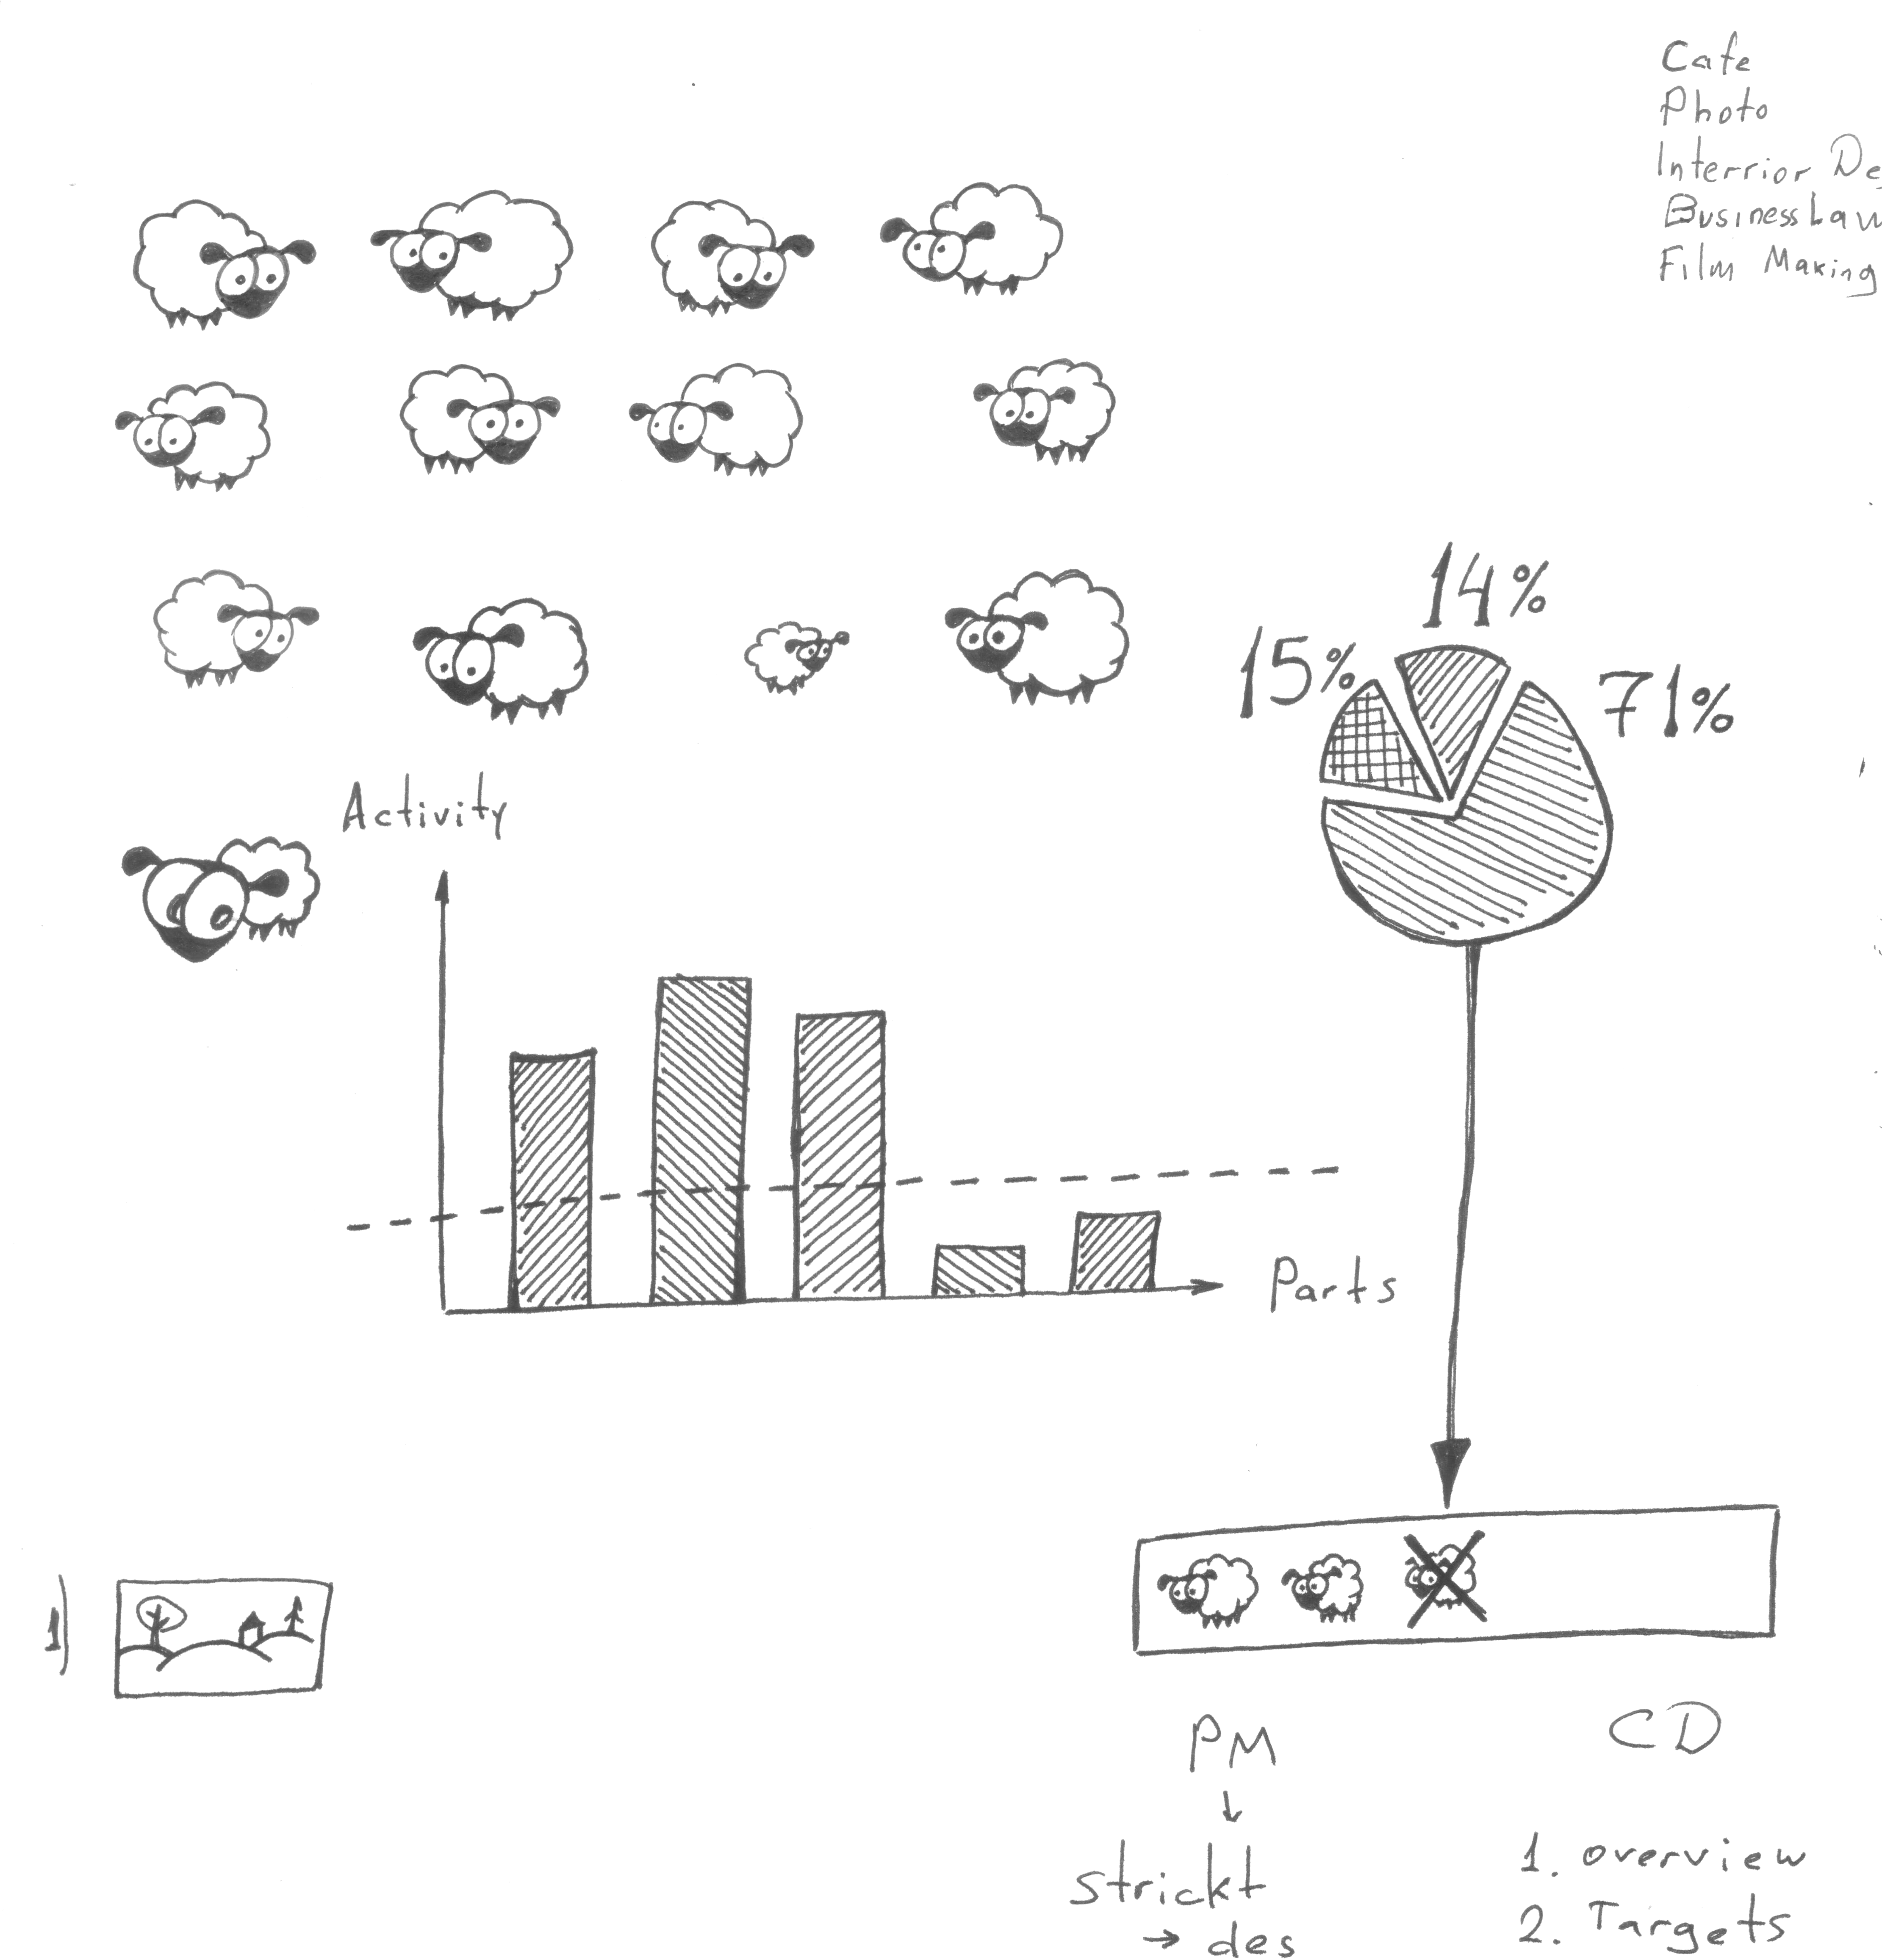 Cafe
Photo
Interrior De
Business Law
Film Making
14%
15%
71%
Activity
Parts
1)
PM
CD
↓
strickt
→ des
1. overview
2. Targets